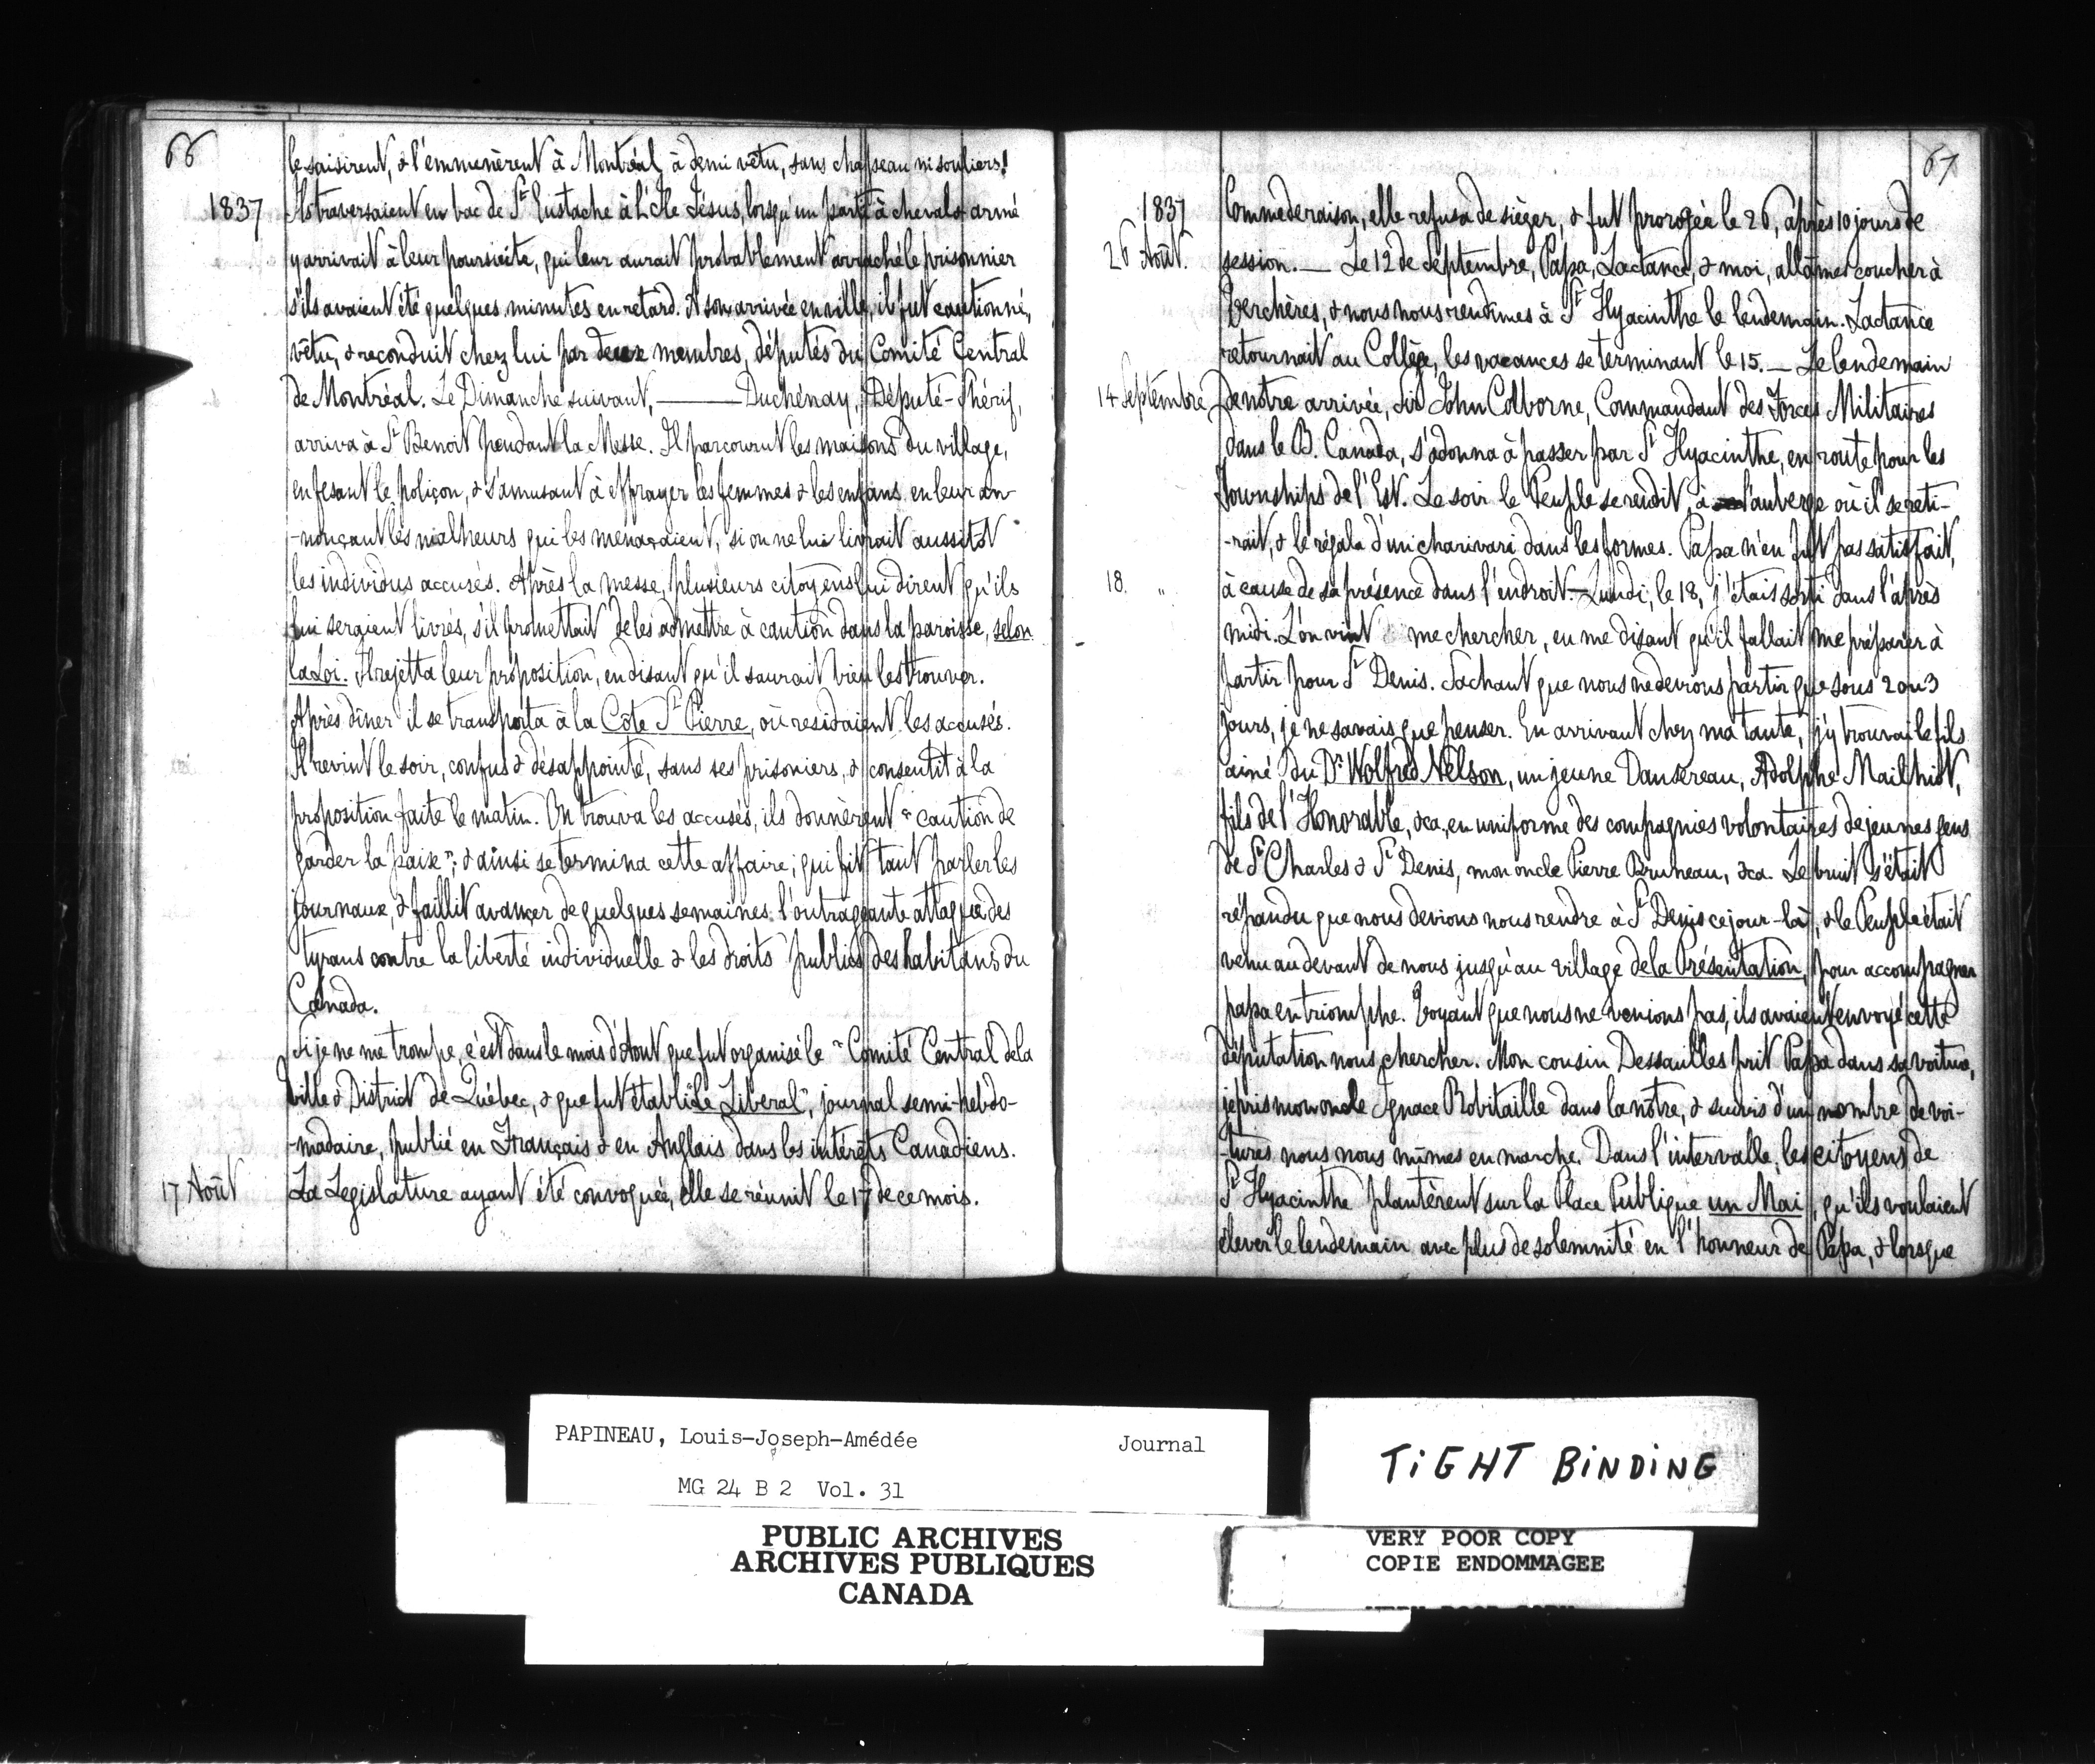 66
le saisirent, & l'emmenèrent à Montréal, à demi vêtu, sans chapeau ni souliers!
1837 Ils traversaient en bac de St Eustache à L'Ile Jésus, lorsqu'un parti à cheval & armé
y arrivait à leur poursuite, qui leur aurait probablement arraché le prisonnier
s'ils avaient été quelques minutes en retard. A son arrivée en ville, il fut cautionné,
vêtu, & reconduit chez lui par deux membres, députés du Comité Central
de Montréal. Le Dimanche suivant, ——— Duchénay, Député-Shérif,
arriva à St Benoit pendant la Messe. Il parcourut les maisons du village,
en fesant le poliçon, & s'amusant à effrayer les femmes & les enfans en leur an-
-nonçant les malheurs qui les menaçaient, si on ne lui livrait aussitôt
les individus accusés. Après la messe, plusieurs citoyens lui dirent qu'ils
lui seraient livrés, s'il promettait de les admettre à caution dans la paroisse, selon
la Loi. Il rejetta leur proposition, en disant qu'il saurait bien les trouver.
Après dîner il se transporta à la Côte St Pierre, où residaient les accusés.
Il revint le soir, confus & désappointé, sans ses prisoniers, & consentit à la
proposition faite le matin. On trouva les accusés, ils donnèrent "caution de
garder la paix"; & ainsi se termina cette affaire, qui fit tant parler les
journaux, & faillit avancer de quelques semaines l'outrageante attaque des
tyrans contre la liberté individuelle & les droits publics des habitans du
Canada.
Si je ne me trompe, c'est dans le mois d'Aout que fut organisé le "Comité Central de la
ville & District de Québec, & que fut établi "Le Libéral", journal semi-hebdo-
-madaire, publié en Français & en Anglais dans les intérêts Canadiens.
17 Août La Legislature ayant été convoquée, elle se réunit le 17 de ce mois.
67
1837 Comme de raison, elle refusa de siéger, & fut prorogée le 26, après 10 jours de
26 Août. session. — Le 12 de Septembre, Papa, Lactance, & moi, allâmes coucher à
Verchères, & nous nous rendîmes à St Hyacinthe le lendemain. Lactance
retournait au Collège, les vacances se terminant le 15. — Le lendemain
14 Septembre de notre arrivée, Sir John Colborne, Commandant des Forces Militaires
dans le B. Canada, s'adonna à passer par St Hyacinthe, en route pour les
Townships de l'Est. Le soir le Peuple se rendit à l'auberge où il se reti-
-rait, & le régala d'un charivari dans les formes. Papa n'en fut pas satisfait,
18. " à cause de sa présence dans l'endroit. — Lundi, le 18, j'étais sorti dans l'après
midi. L'on vint me chercher, en me disant qu'il fallait me préparer à
partir pour St Denis. Sachant que nous ne devions partir que sous 2 ou 3
jours, je ne savais que penser. En arrivant chez ma tante, j'y trouvai le fils
ainé du Dr Wolfred Nelson, un jeune Dansereau, Adolphe Mailhiot,
fils de l'Honorable, &ca, en uniforme des compagnies volontaires de jeunes gens
de St Charles & St Denis, mon oncle Pierre Bruneau, &ca. Le bruit s'était
répandu que nous devions nous rendre à St Denis ce jour-là, & le Peuple était
venu au devant de nous jusqu'au village de la Présentation, pour accompagner
papa en triomphe. Voyant que nous ne venions pas, ils avaient envoyé cette
députation nous chercher. Mon cousin Dessaulles prit Papa dans sa voiture,
je pris mon oncle Ignace Robitaille dans la nôtre, & suivis d'un nombre de voi-
-tures nous nous mîmes en marche. Dans l'intervalle, les citoyens de
St Hyacinthe plantèrent sur la Place Publique un Mai, qu'ils voulaient
élever le lendemain avec plus de solemnité en l'honneur de Papa, & lorsque
PAPINEAU, Louis-Joseph-Amédée Journal
MG 24 B 2 Vol. 31
PUBLIC ARCHIVES
ARCHIVES PUBLIQUES
CANADA
TiGHT BiNDiNG
VERY POOR COPY
COPIE ENDOMMAGEE